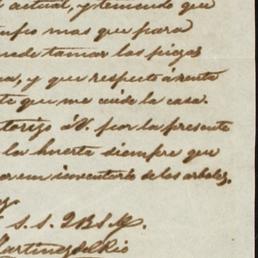 actual, y temiendo que
mas que para
uede tamar las piezas
a, y que respecto á renta
te que me cuide la casa.
torizo á V. por la presente
la huerta siempre que
or em inventario de los arboles.
S. S. Q B S M.
Martinez del Rio